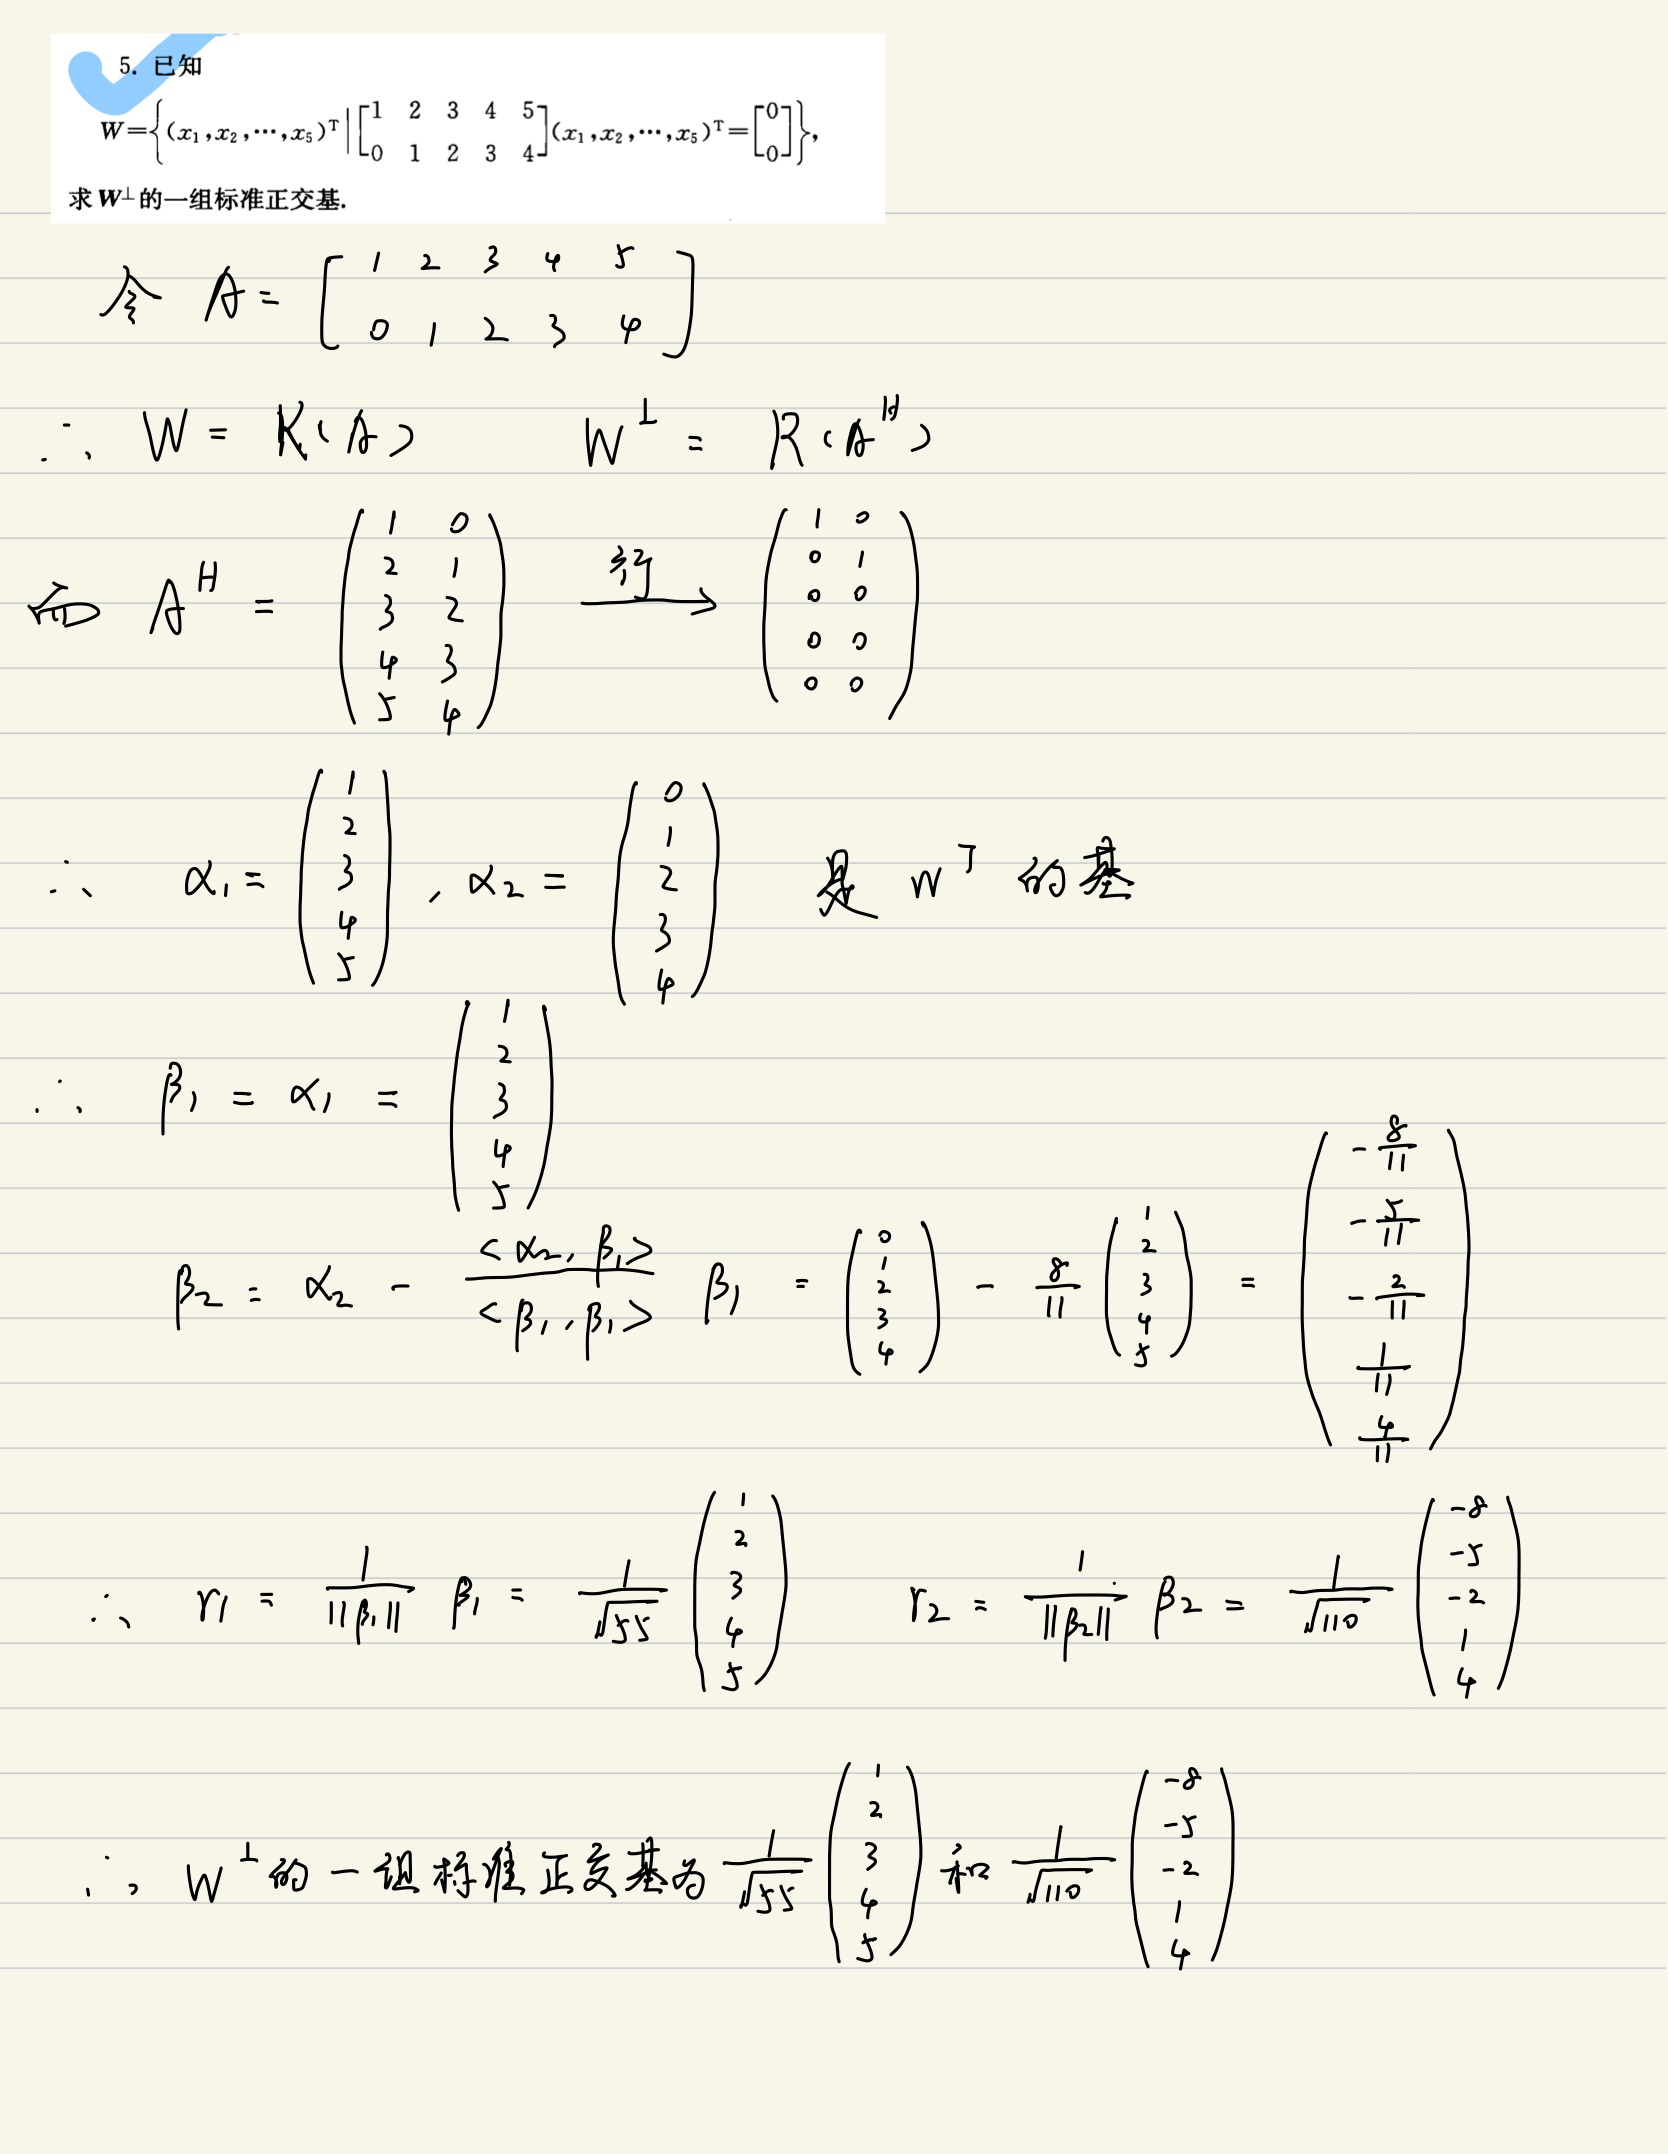 5. 已知
W={(x₁,x₂,⋯,x₅)ᵀ | [1 2 3 4 5; 0 1 2 3 4](x₁,x₂,⋯,x₅)ᵀ=[0; 0]},
求W⊥的一组标准正交基.
令 A = [1 2 3 4 5; 0 1 2 3 4]
∴ W = K(A) W⊥ = R(Aᴴ)
而 Aᴴ = (1 0; 2 1; 3 2; 4 3; 5 4) 行→ (1 0; 0 1; 0 0; 0 0; 0 0)
∴ α₁ = (1; 2; 3; 4; 5), α₂ = (0; 1; 2; 3; 4) 是 W⊥ 的基
∴ β₁ = α₁ = (1; 2; 3; 4; 5)
β₂ = α₂ - <α₂, β₁>/<β₁, β₁> β₁ = (0; 1; 2; 3; 4) - 8/11 (1; 2; 3; 4; 5) = (-8/11; -5/11; -2/11; 1/11; 4/11)
∴ r₁ = 1/||β₁|| β₁ = 1/√55 (1; 2; 3; 4; 5) r₂ = 1/||β₂|| β₂ = 1/√110 (-8; -5; -2; 1; 4)
∴ W⊥ 的一组标准正交基为 1/√55 (1; 2; 3; 4; 5) 和 1/√110 (-8; -5; -2; 1; 4)